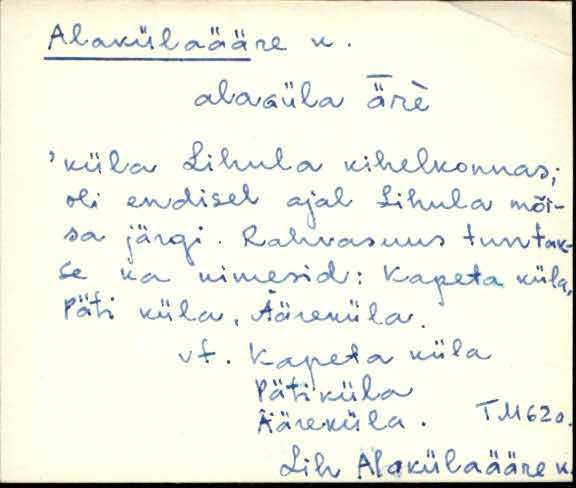 Alakülaääre k.
alaɢüla ǟrè
'küla Lihula kihelkonnas;
oli endisel ajal Lihula mõi-
sa järgi. Rahvasuus tuntak-
se ka nimesid: Kapeta küla,
Päti küla, Ääreküla.
vt. Kapeta küla
Pätiküla
Ääreküla. TM620.
Lih Alakülaääre k.